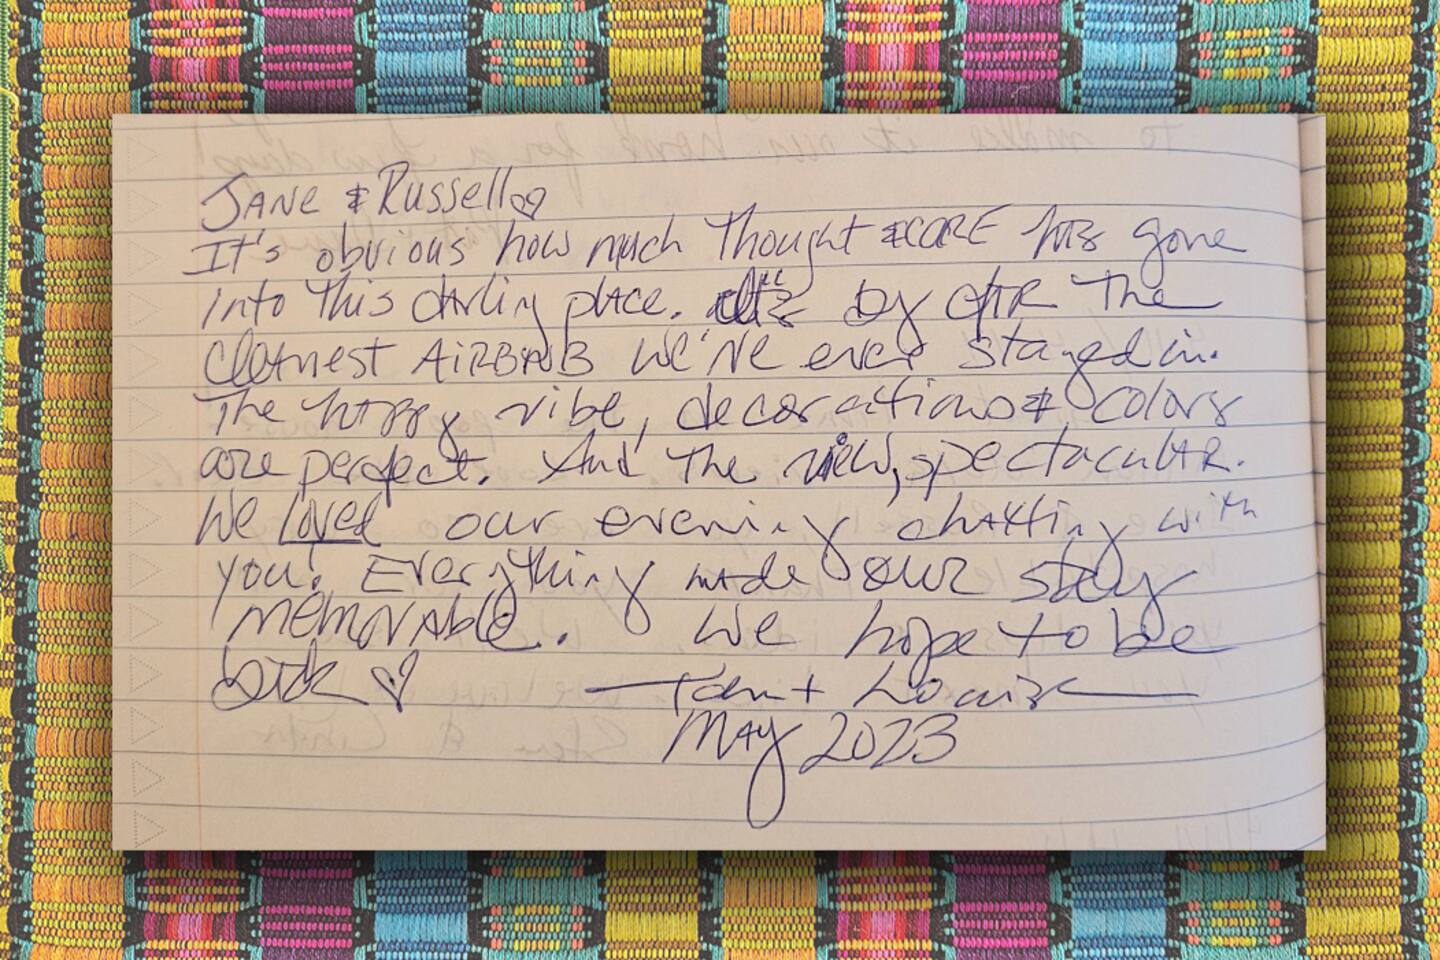 JANE & Russell♡
It's obvious how much thought & CARE has gone
into this darling place. It's by FAR the
cleanest AIRBNB we've ever stayed in.
The happy vibe, decorations & colors
are perfect. And the view, spectacular.
We loved our evening chatting with
you! Everything made our stay
memorable. We hope to be
back ♡ — Louise
MAY 2023